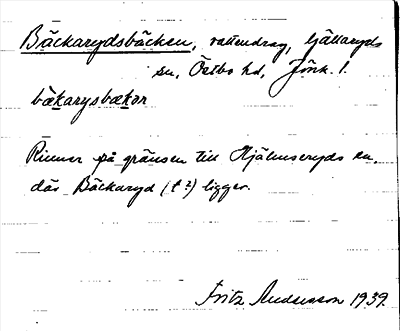 Bäckarydsbäcken, vattendrag, Ljällaryds
sn, Östbo hd, Jönk. l.
bækarysbækər
Rinner på gränsen till Hjälmseryds sn,
där Bäckaryd (t 2) ligger.
Fritz Andersson 1939.